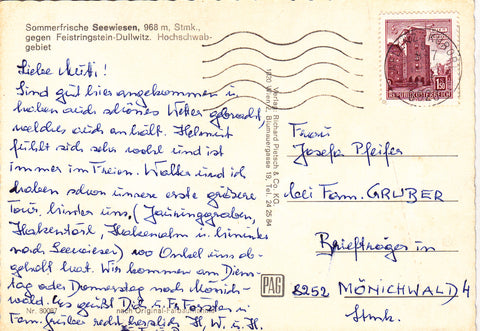 Sommerfrische Seewiesen, 968 m, Stmk.,
gegen Feistringstein-Dullwitz. Hochschwab-
gebiet
Liebe Mutti!
Sind gut hier angekommen u.
haben auch schönes Wetter gebracht,
welches auch anhält. Helmut
fühlt sich sehr wohl und ist
immer im Freien. Walter und ich
haben schon unsere erste größere
Tour hinter uns. (Jauringgraben,
hinunter
nach Seewiesen) wo Onkel uns ab-
geholt hat. Wir kommen am Diens-
tag oder Donnerstag nach Mönich-
wald. Es grüßt Dich u. Fr.
Fam. Gruber recht herzlich H, W. u. H.
Nr. 80087 nach Original-Farbaufnahme
Verlag Richard Pietsch & Co. KG.
1020 Wien 2, Blumauergasse 19, Tel. 24 25 84
PAG
REPUBLIK ÖSTERREICH
1.50
Frau
Josefa Pfeifer
bei Fam. GRUBER
Briefträger in
8252 MÖNICHWALD 4
Stmk.